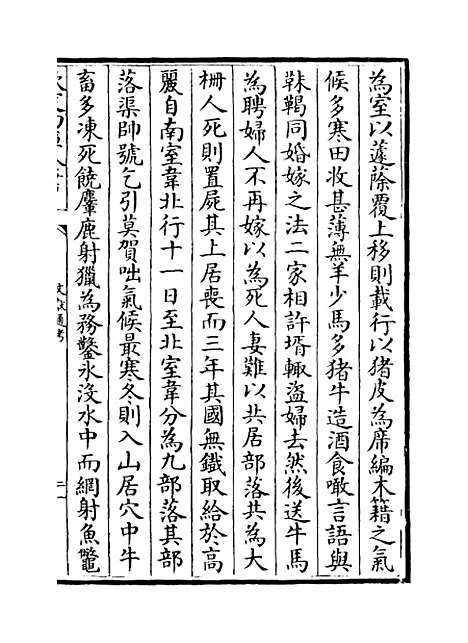 為室以蘧蒢覆上移則載行以猪皮為席編木籍之氣
候多寒田收甚薄無羊少馬多猪牛造酒食噉言語與
靺鞨同婚嫁之法二家相許壻輙盜婦去然後送牛馬
為聘婦人不再嫁以為死人妻難以共居部落共為大
柵人死則置屍其上居喪而三年其國無鐵取給於高
麗自南室韋北行十一日至北室韋分為九部落其部
落渠帥號乞引莫賀咄氣候最寒冬則入山居穴中牛
畜多凍死饒麞鹿射獵為務鑿氷沒水中而網射魚鼈
文獻通考